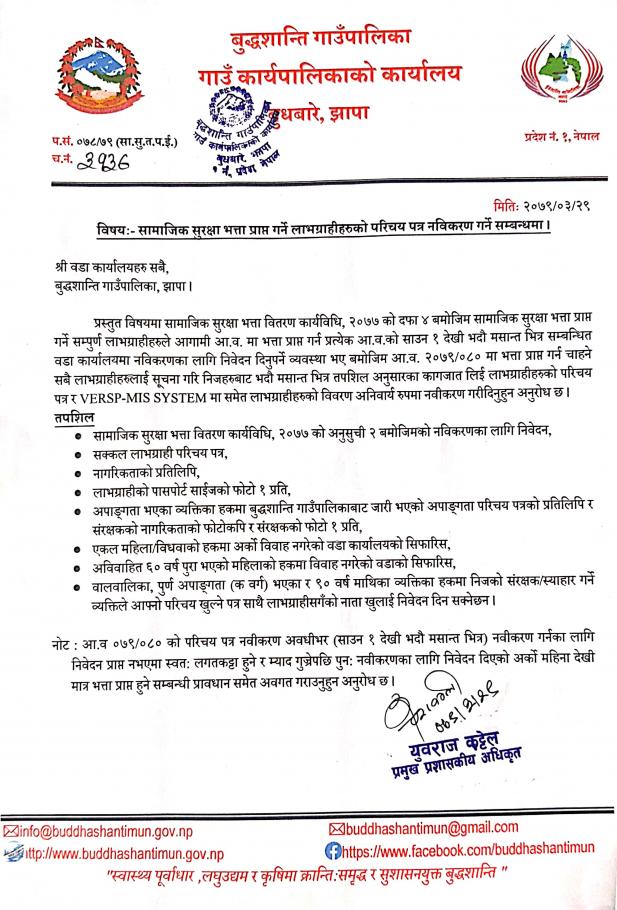 बुद्धशान्ति गाउँपालिका
गाउँ कार्यपालिकाको कार्यालय
बुधबारे, झापा
बुद्धशान्ति गाउँपालिका
गाउँ कार्यपालिकाको कार्यालय
बुधबारे, झापा
१ नं. प्रदेश, नेपाल
प.सं. ०७८/७९ (सा.सु.त.प.ई.)
च.नं. ३९३६
प्रदेश नं. १, नेपाल
मितिः २०७९/०३/२९
विषयः- सामाजिक सुरक्षा भत्ता प्राप्त गर्ने लाभग्राहीहरुको परिचय पत्र नविकरण गर्ने सम्बन्धमा ।
श्री वडा कार्यालयहरु सबै,
बुद्धशान्ति गाउँपालिका, झापा ।
प्रस्तुत विषयमा सामाजिक सुरक्षा भत्ता वितरण कार्यविधि, २०७७ को दफा ४ बमोजिम सामाजिक सुरक्षा भत्ता प्राप्त
गर्ने सम्पुर्ण लाभग्राहीहरुले आगामी आ.व. मा भत्ता प्राप्त गर्न प्रत्येक आ.व.को साउन १ देखी भदौ मसान्त भित्र सम्बन्धित
वडा कार्यालयमा नविकरणका लागि निवेदन दिनुपर्ने व्यवस्था भए बमोजिम आ.व. २०७९/०८० मा भत्ता प्राप्त गर्न चाहने
सबै लाभग्राहीहरुलाई सूचना गरि निजहरुबाट भदौ मसान्त भित्र तपशिल अनुसारका कागजात लिई लाभग्राहीहरुको परिचय
पत्र र VERSP-MIS SYSTEM मा समेत लाभग्राहीहरुको विवरण अनिवार्य रुपमा नवीकरण गरीदिनुहुन अनुरोध छ ।
तपशिल
• सामाजिक सुरक्षा भत्ता वितरण कार्यविधि, २०७७ को अनुसुची २ बमोजिमको नविकरणका लागि निवेदन,
• सक्कल लाभग्राही परिचय पत्र,
• नागरिकताको प्रतिलिपि,
• लाभग्राहीको पासपोर्ट साईजको फोटो १ प्रति,
• अपाङ्गता भएका व्यक्तिका हकमा बुद्धशान्ति गाउँपालिकाबाट जारी भएको अपाङ्गता परिचय पत्रको प्रतिलिपि र
संरक्षकको नागरिकताको फोटोकपि र संरक्षकको फोटो १ प्रति,
• एकल महिला/विधवाको हकमा अर्को विवाह नगरेको वडा कार्यालयको सिफारिस,
• अविवाहित ६० वर्ष पुरा भएको महिलाको हकमा विवाह नगरेको वडाको सिफारिस,
• वालवालिका, पुर्ण अपाङ्गता (क वर्ग) भएका र ९० वर्ष माथिका व्यक्तिका हकमा निजको संरक्षक/स्याहार गर्ने
व्यक्तिले आफ्नो परिचय खुल्ने पत्र साथै लाभग्राहीसगँको नाता खुलाई निवेदन दिन सक्नेछन ।
नोट : आ.व ०७९/०८० को परिचय पत्र नवीकरण अवधीभर (साउन १ देखी भदौ मसान्त भित्र) नवीकरण गर्नका लागि
निवेदन प्राप्त नभएमा स्वत: लगतकट्टा हुने र म्याद गुज्रेपछि पुन: नवीकरणका लागि निवेदन दिएको अर्को महिना देखी
मात्र भत्ता प्राप्त हुने सम्बन्धी प्रावधान समेत अवगत गराउनुहुन अनुरोध छ ।
युवराज कट्टेल
प्रमुख प्रशासकीय अधिकृत
info@buddhashantimun.gov.np
buddhashantimun@gmail.com
http://www.buddhashantimun.gov.np
https://www.facebook.com/buddhashantimun
"स्वास्थ्य पूर्वाधार ,लघुउद्यम र कृषिमा क्रान्ति:समृद्ध र सुशासनयुक्त बुद्धशान्ति "